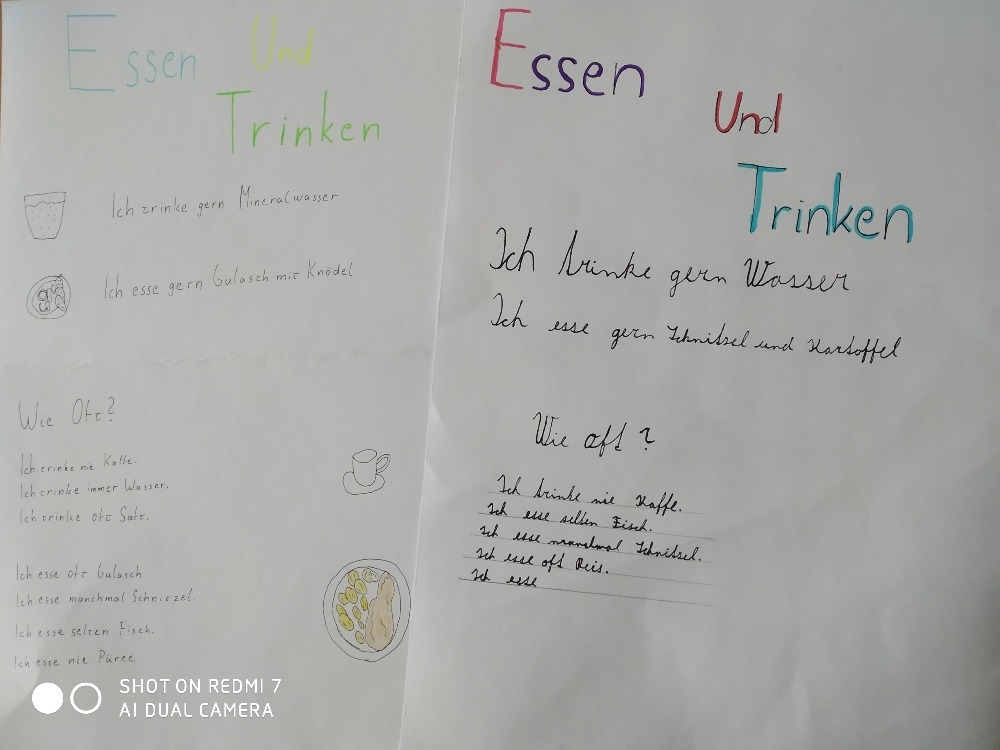 Essen Und
Trinken
Ich trinke gern Mineralwasser
Ich esse gern Gulasch mit Knödel
Wie Oft?
Ich trinke nie Kaffe.
Ich trinke immer Wasser.
Ich trinke oft Saft.
Ich esse oft Gulasch
Ich esse manchmal Schniezel.
Ich esse selten Fisch.
Ich esse nie Püree
SHOT ON REDMI 7
AI DUAL CAMERA
Essen
Und
Trinken
Ich trinke gern Wasser
Ich esse gern Schnitzel und Kartoffel
Wie oft?
Ich trinke nie Kaffe.
Ich esse selten Fisch.
Ich esse Schnitzel.
Ich esse oft Reis.
Ich esse